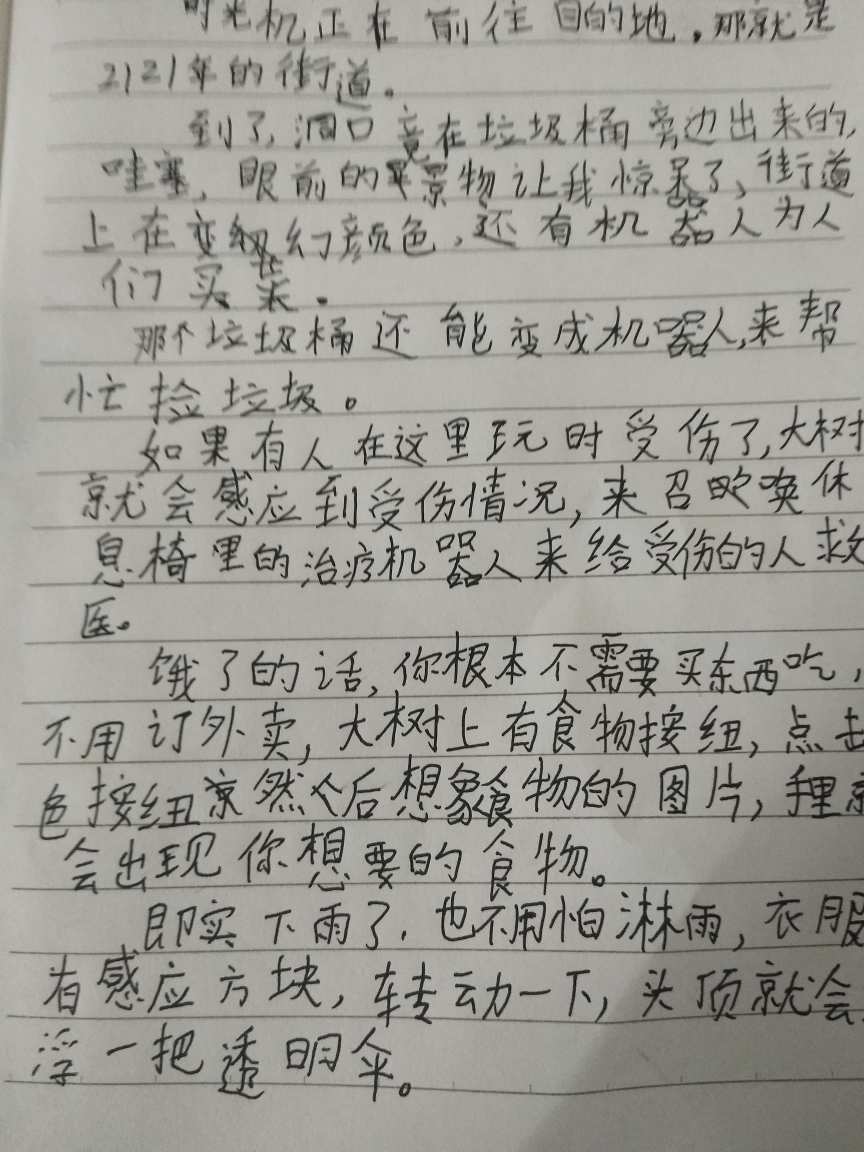 时光机正在前往目的地,那就是
2121年的街道。
到了,洞口竟在垃圾桶旁边出来的,
哇塞,眼前的景物让我惊呆了,街道
上在变幻颜色,还有机器人为人
们买卖。
那个垃圾桶还能变成机器人,来帮
忙捡垃圾。
如果有人在这里玩时受伤了,大树
就会感应到受伤情况,来召唤休
息椅里的治疗机器人来给受伤的人救
医。
饿了的话,你根本不需要买东西吃,
不用订外卖,大树上有食物按纽,点击
色按纽然后想象食物的图片,手里就
会出现你想要的食物。
即实下雨了,也不用怕淋雨,衣服
有感应方块,转动一下,头顶就会
浮一把透明伞。